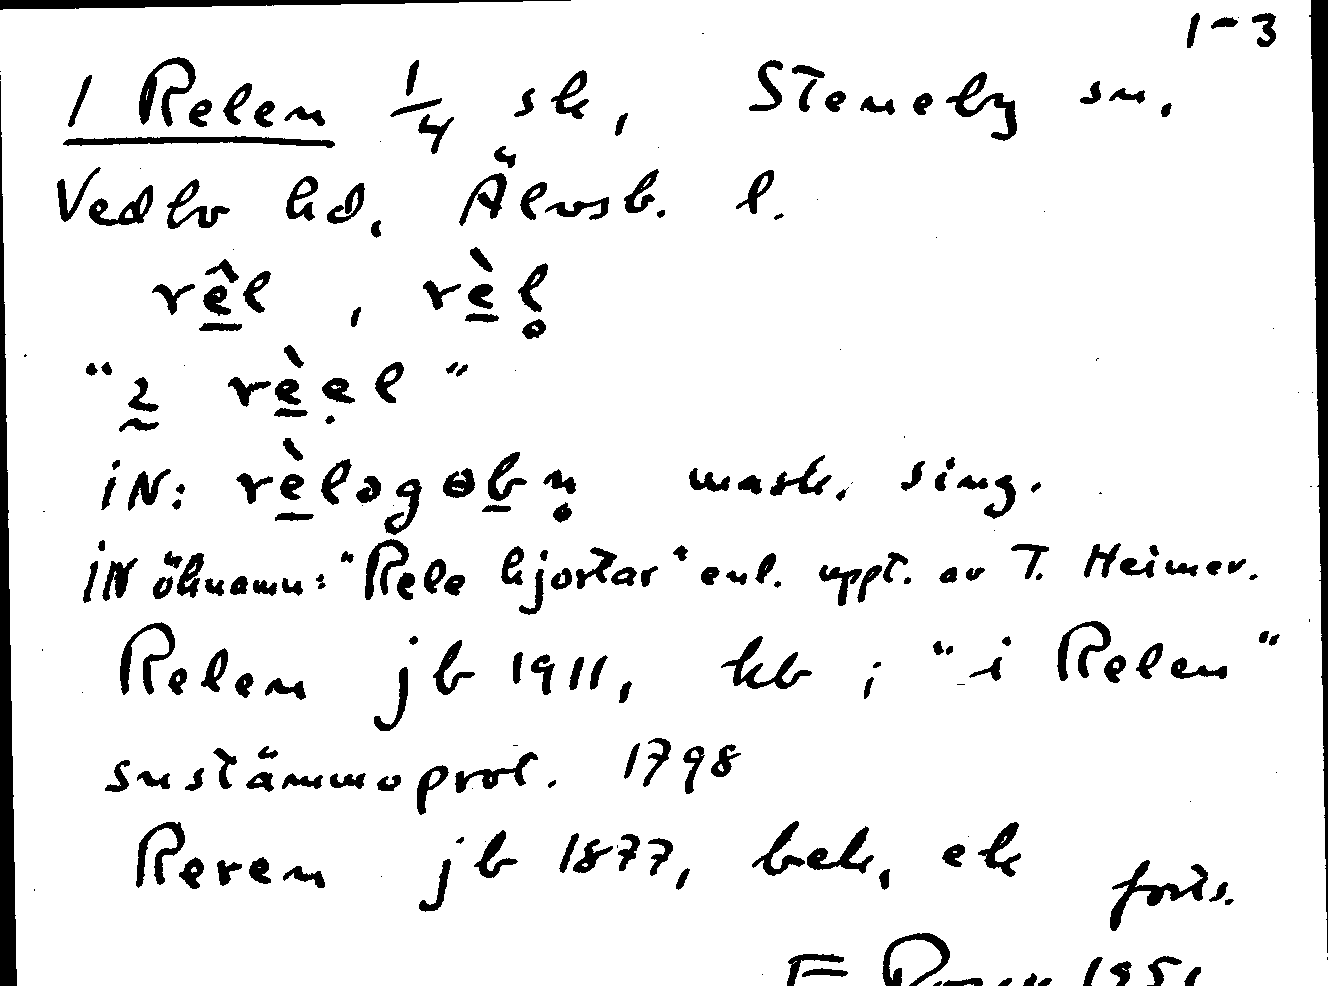 1-3
1 Relen 1/4 sk, Steneby sn,
Vedbo hd, Älvsb. l.
rêl, rèl̥
"2 rèẹl"
iN: rèləgɵbn̥ mask. sing.
iN öknamn: "Rele hjortar" enl. uppt. av T. Heimer.
Relen jb 1911, kb ; "i Relen"
snstämmoprot. 1798
Reren jb 1877, bek, ek forts.